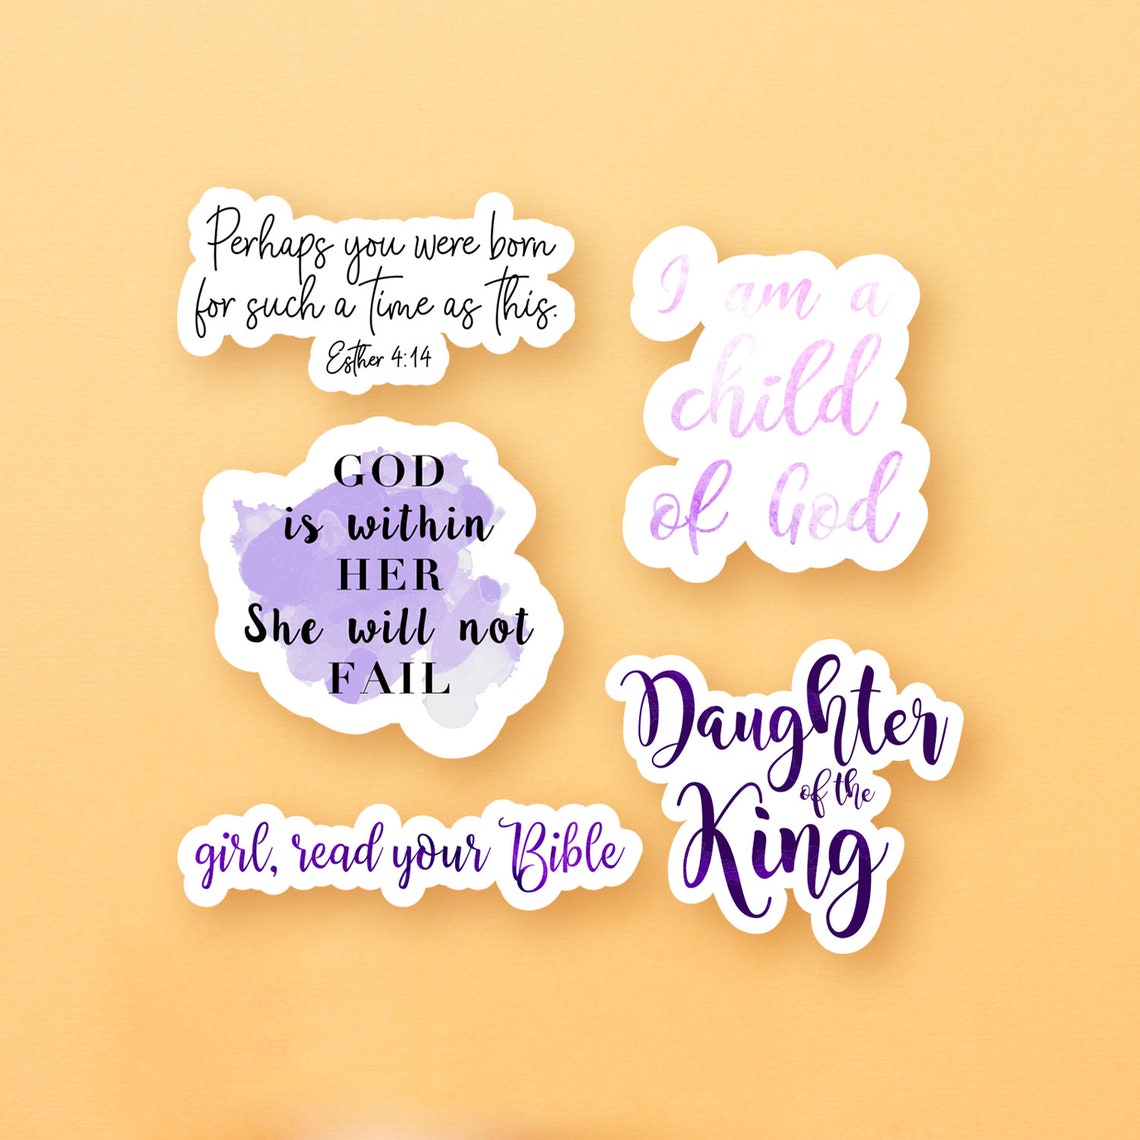 Perhaps you were born
for such a time as this.
Esther 4:14
I am a
child
of God
GOD
is within
HER
She will not
FAIL
Daughter
of the
King
girl, read your Bible